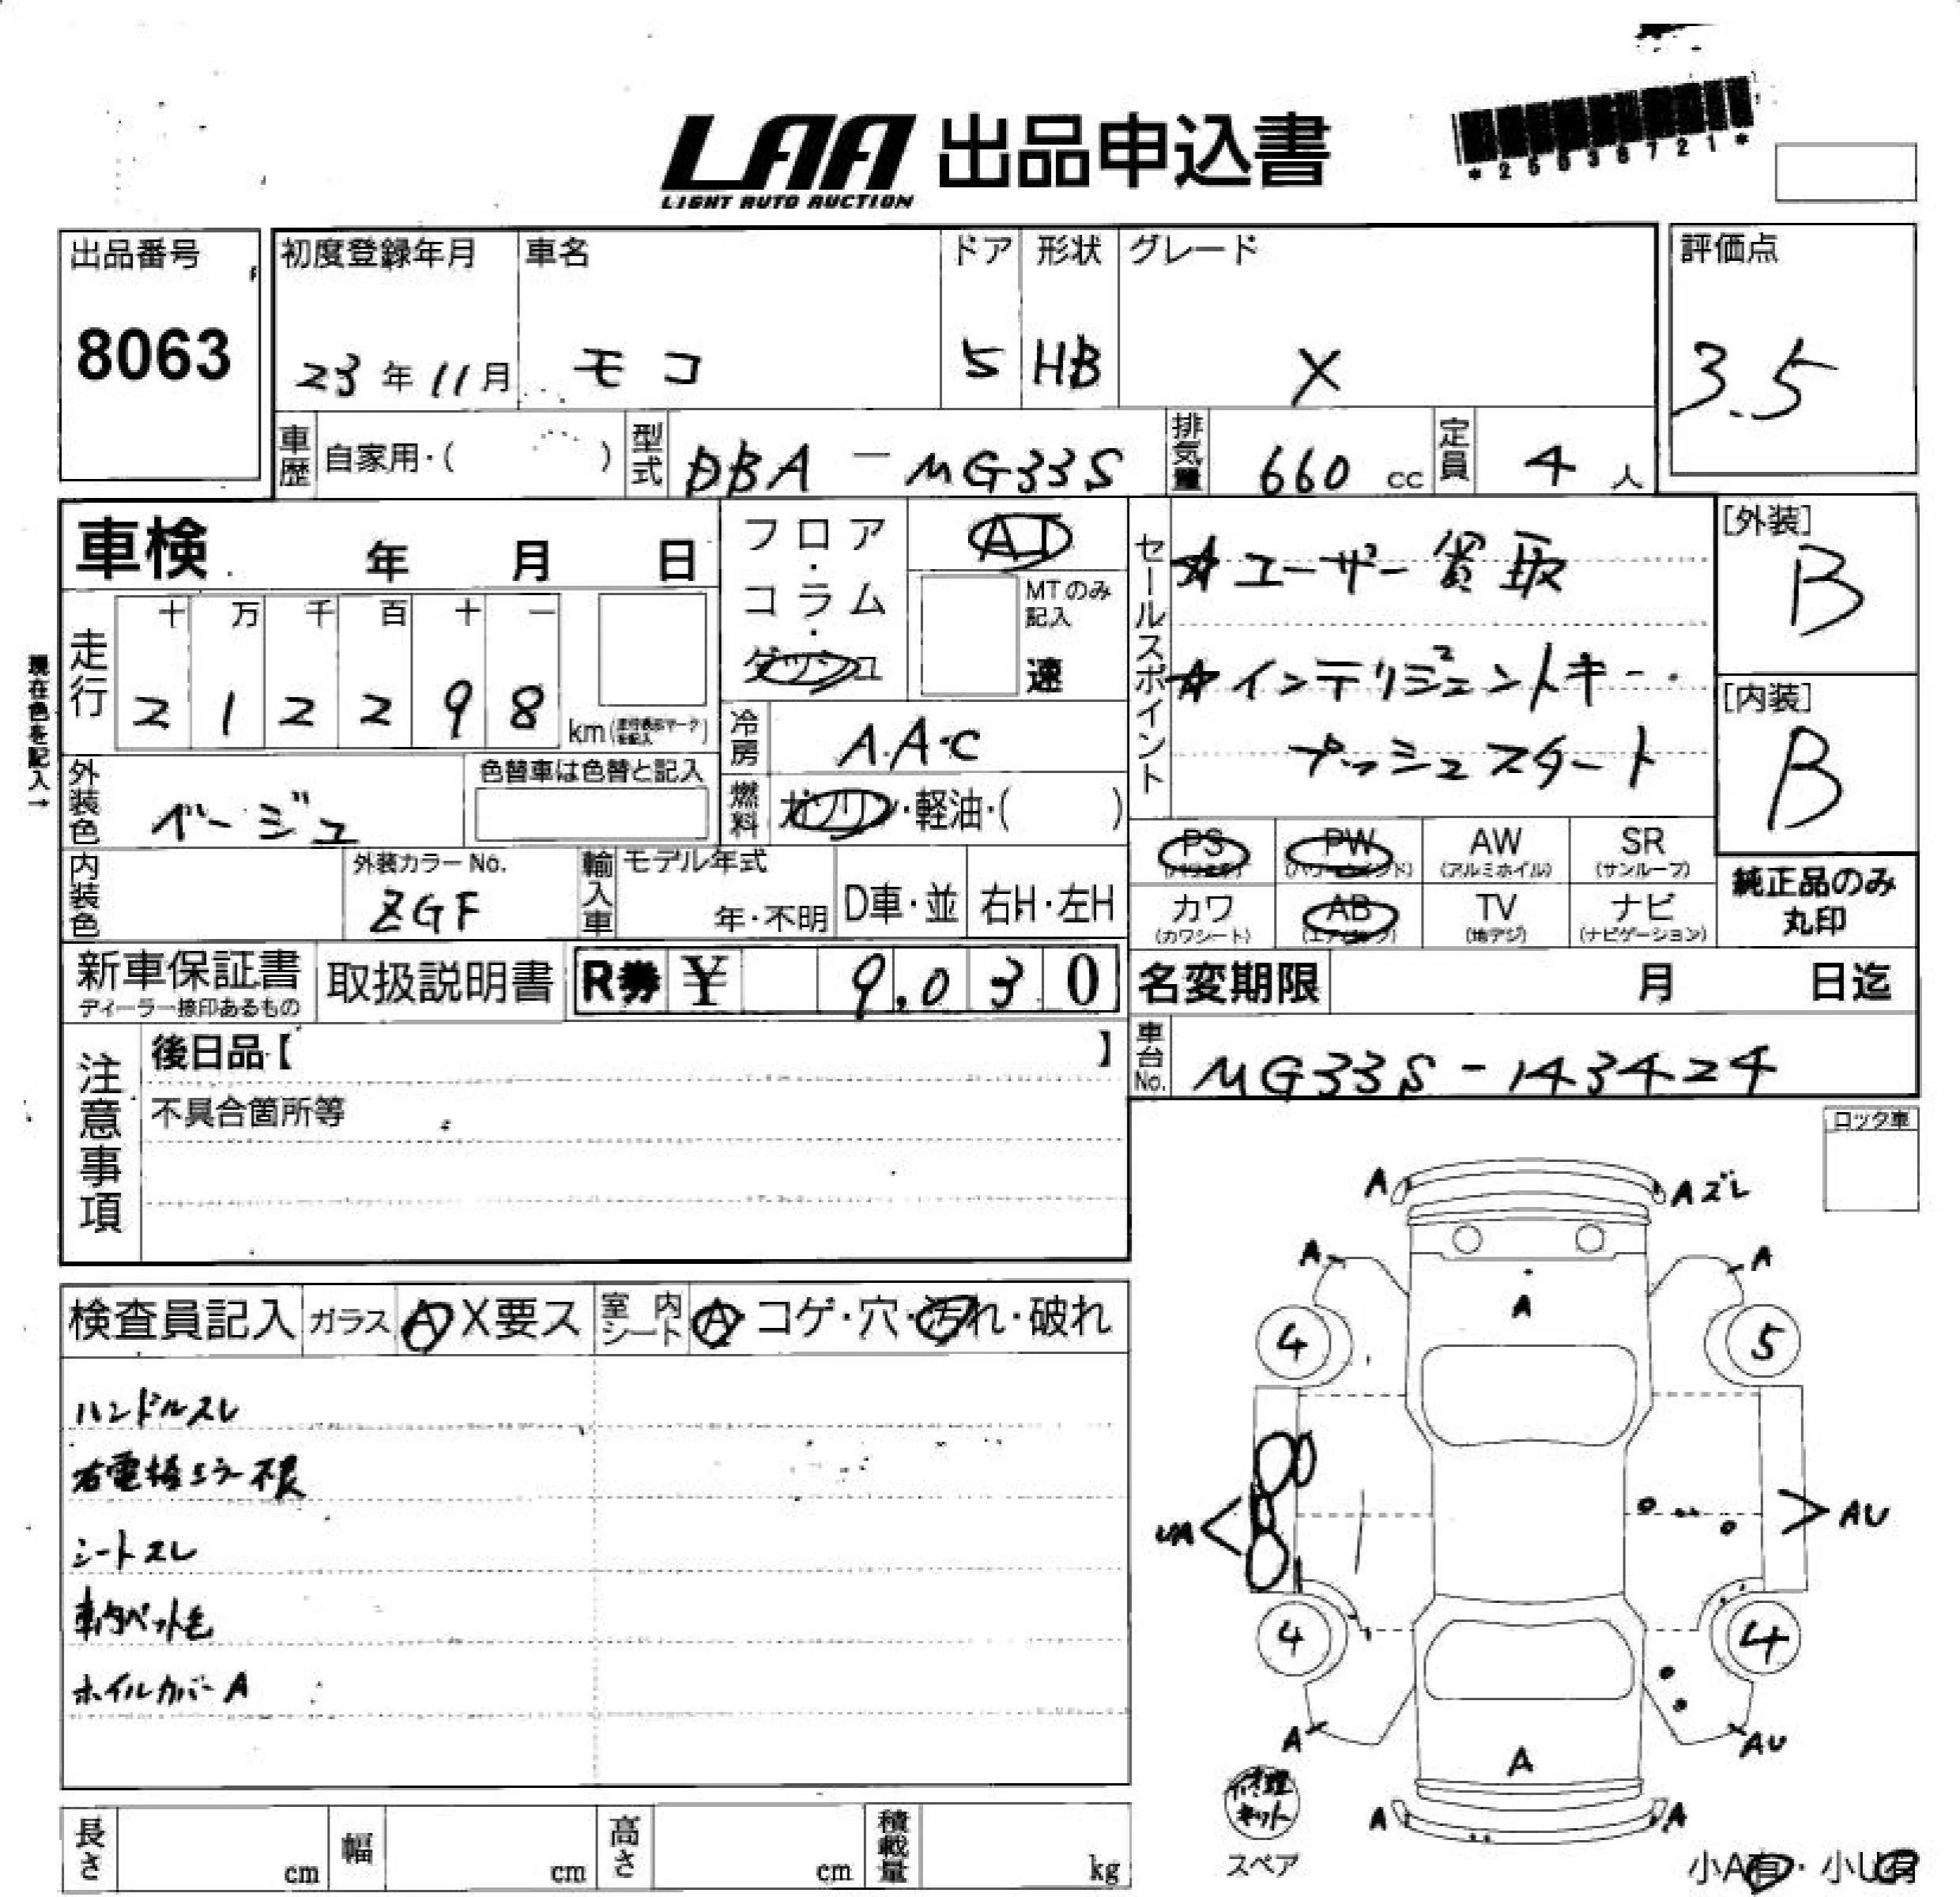 LAA 出品申込書
LIGHT AUTO AUCTION
*25036721*
出品番号
8063
初度登録年月
23年11月
車名
モコ
ドア
5
形状
HB
グレード
X
評価点
3.5
車歴 自家用・( )
型式 DBA-MG33S
排気量 660 cc
定員 4 人
車検 年 月 日
フロア・コラム・ダッシュ
AT
MTのみ記入
速
セールスポイント
☆ユーザー買取
☆インテリジェントキー・
プッシュスタート
[外装]
B
[内装]
B
現在色を記入→
走行
十 万 千 百 十 一
2 1 2 2 9 8
km
冷房 A.A.C
外装色 ベージュ
色替車は色替と記入
燃料 ガソリン・軽油・( )
PS
PW
AW
(アルミホイル)
SR
(サンルーフ)
カワ
(カワシート)
AB
(エアバック)
TV
(地デジ)
ナビ
(ナビゲーション)
純正品のみ
丸印
内装色
外装カラーNo.
ZGF
輸入車
モデル年式
年・不明
D車・並
右H・左H
新車保証書
ディーラー捺印あるもの
取扱説明書
R券 ¥ 9,030
名変期限 月 日迄
車台No. MG33S-143424
注意事項
後日品【 】
不具合箇所等
ロック車
検査員記入
ガラス A X要ス
室内シート A・コゲ・穴・汚れ・破れ
ハンドルスレ
右電格ミラー不良
シートスレ
車内ペット毛
ホイルカバーA
A
Aズレ
A
A
A
4
5
UA
AU
4
4
A
AU
A
A
A
修理キット
スペア
小A有・小U有
長さ cm
幅 cm
高さ cm
積載量 kg